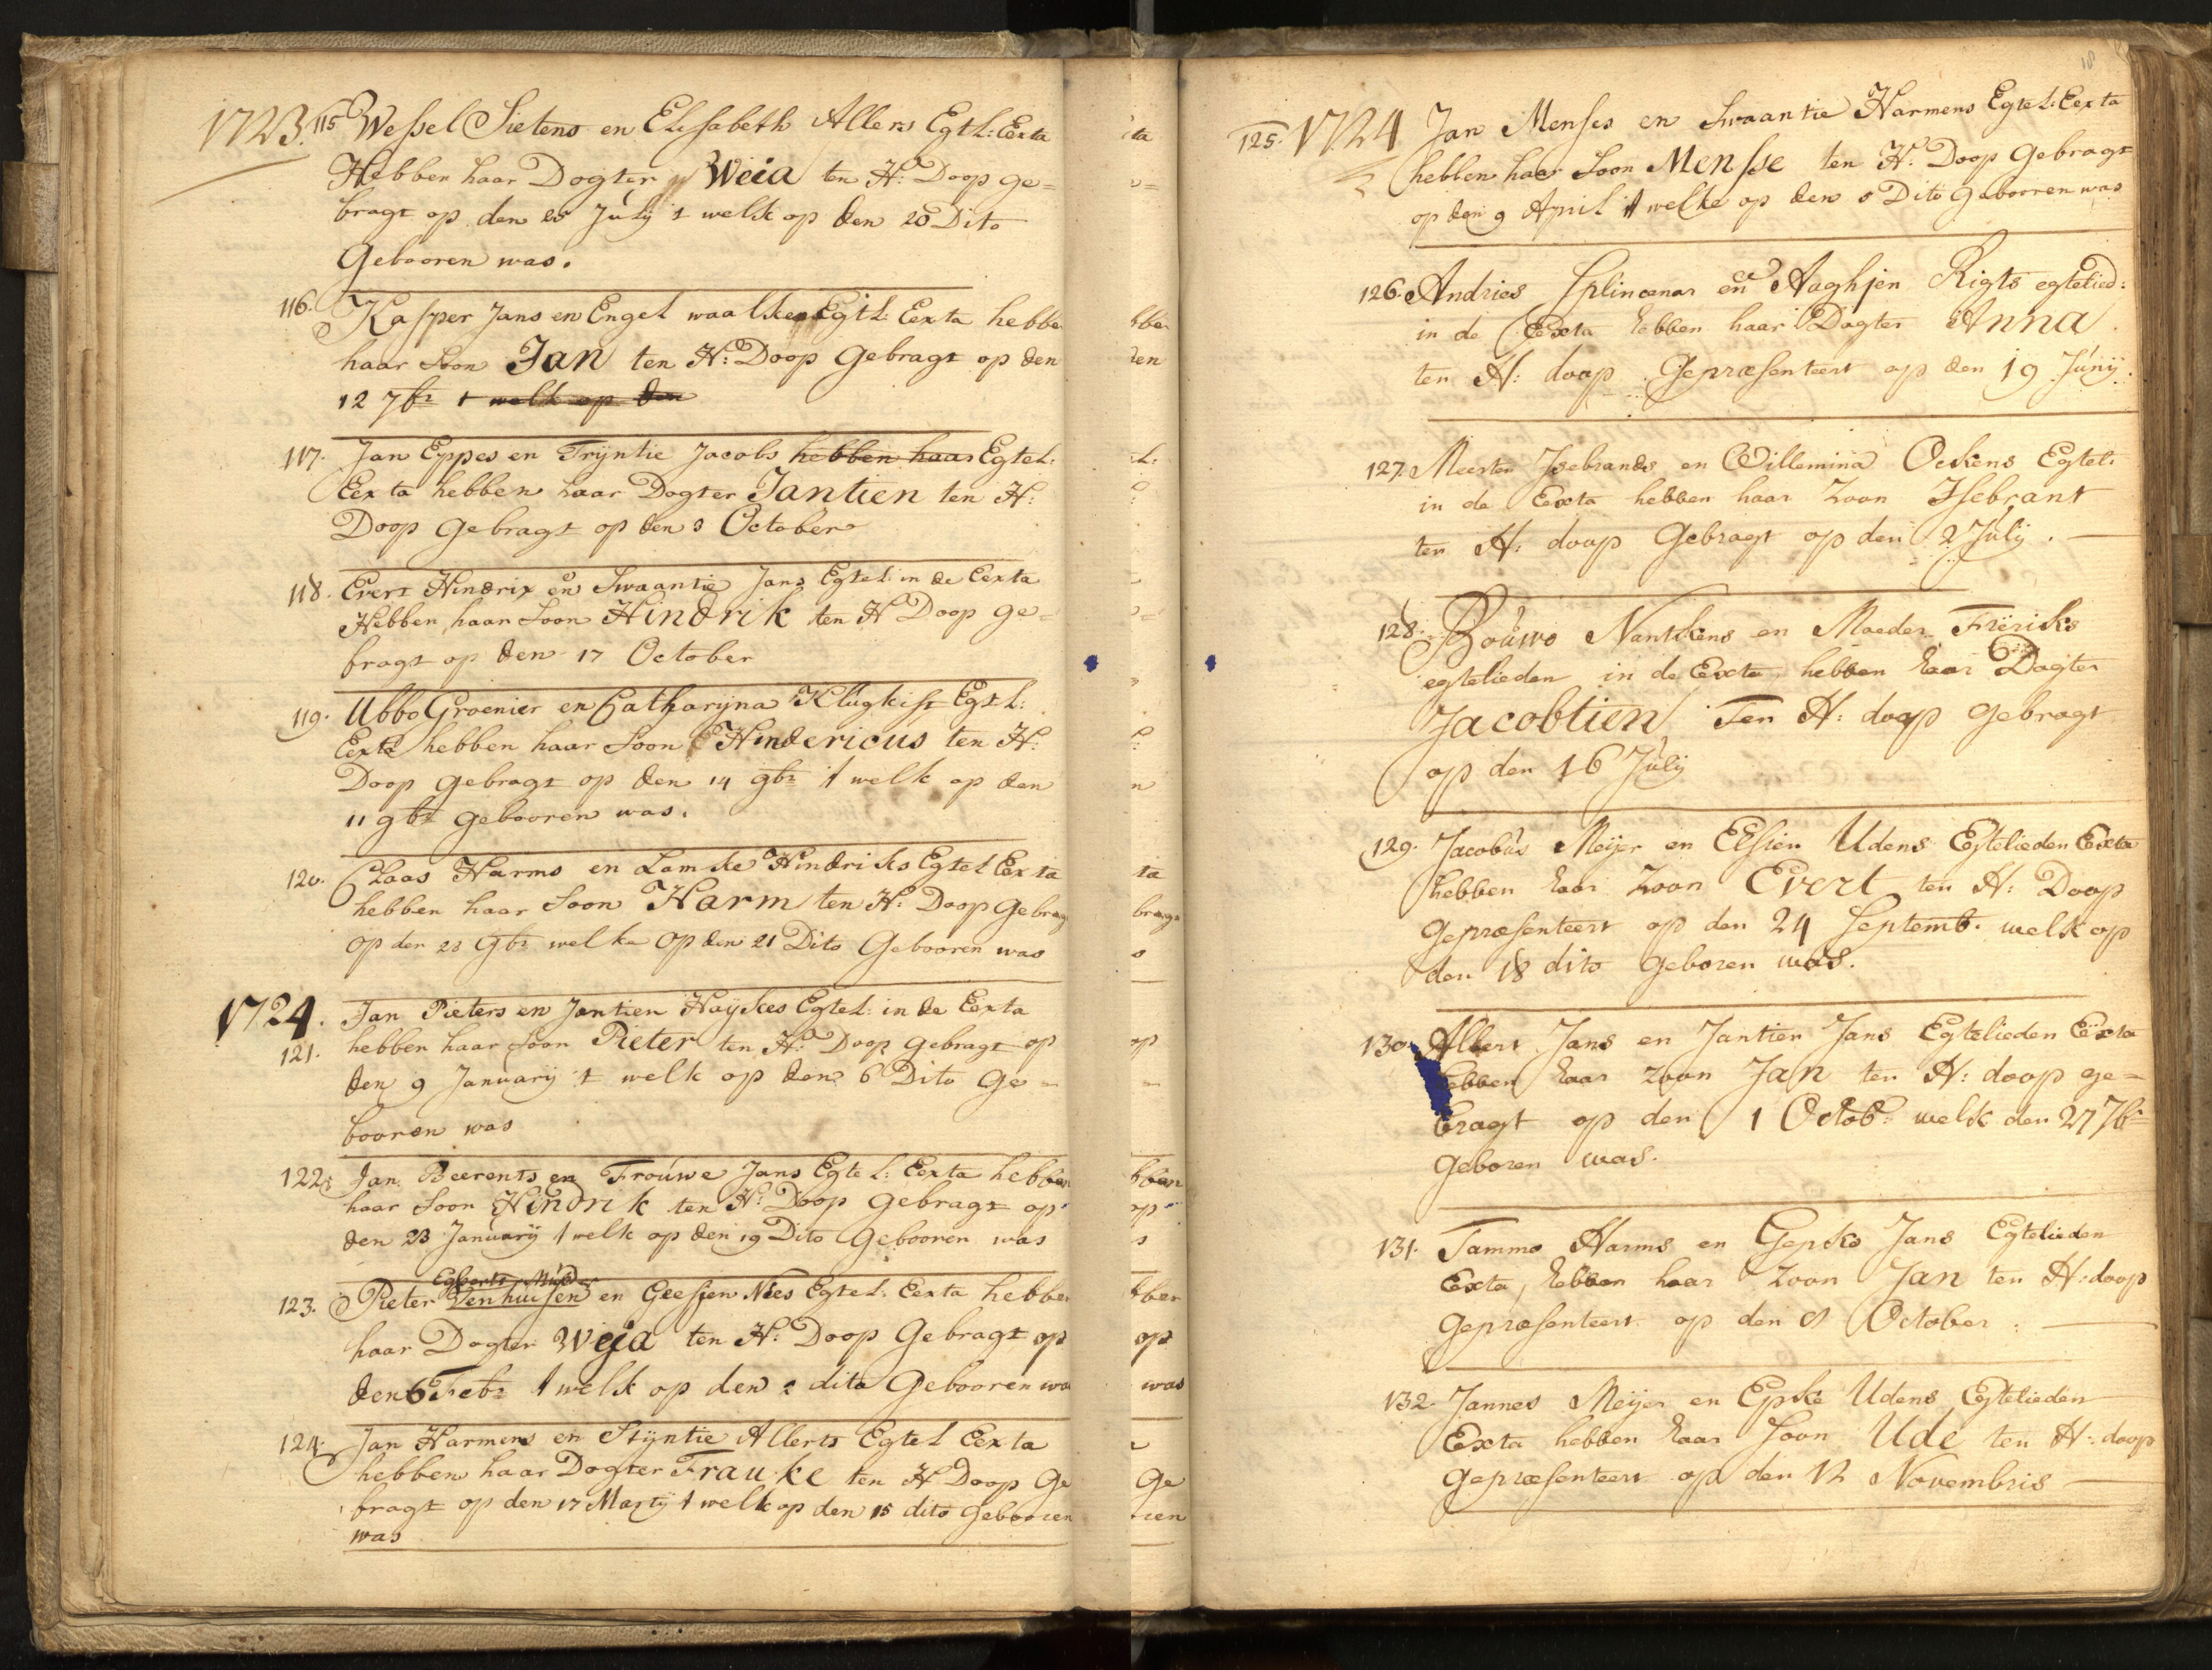 1723. 115 Wessel Sietens en Elisabeth Allers Egtl: Eexta
Hebben haar Dogter Weia ten H: Doop ge=
bragt op den 25 July 't welk op den 20 Dito
Gebooren was.
116. Kasper Jans en Engel waalkes Egtl: Eexta hebben
haar Soon Jan ten H: Doop Gebragt op den
12 7br 't welk op den
117. Jan Eppes en Trÿntie Jacobs hebben haar Egtel:
Eexta hebben haar Dogter Jantien ten H:
Doop Gebragt op den 3 October
118. Evert Hindrix en Swaantie Jans Egtel: in de Eexta
Hebben haar Soon Hindrik ten H Doop ge=
bragt op den 17 October
119. Ubbo Groenier en Catharÿna Klugkist Egtl:
Eexta hebben haar Soon Hindericus ten H:
Doop gebragt op den 14 9br 't welk op den
11 9br gebooren was.
120. Claas Harms en Lamke Hindriks Egtel Eexta
hebben haar Soon Harm ten H: Doop Gebragt
op den 28 9br welke op den 21 Dito Gebooren was
1724. Jan Pieters en Jantien Haÿkes Egtel: in de Eexta
121. hebben haar Soon Pieter ten H: Doop gebragt op
den 9 Januarÿ 't welk op den 6 Dito Ge=
booren was
122. Jan Beerents en Trouwe Jans Egtel: Eexta hebben
haar Soon Hindrik ten H: Doop Gebragt op
den 23 Januarÿ 't welk op den 19 Dito Gebooren was
Egberts Mulder
123. Pieter Venhuisen en Geessien Nies Egtel: Eexta hebben
haar Dogter Weja ten H: Doop Gebragt op
den 6 Febr 't welk op den 2 dito Gebooren was
124. Jan Harmens en Stÿntie Allerts Egtel Eexta
hebben haar Dogter Frauke ten H Doop Ge
bragt op den 17 Martÿ 't welk op den 15 dito Gebooren
was
18
125. 1724 Jan Menses en Swaantie Harmens Egtel: Eexta
hebben haar Soon Mensse ten H: Doop Gebragt
op den 9 April 't welke op den 5 Dito Gebooren was
126. Andries Splinenar en Aaghjen Rigts egtelied:
in de Eexta hebben haar Dogter Anna
ten H: doop Gepræsenteert op den 19 Junÿ.
127. Meerten Jsebrands en Willemina Ockens Egtel:
in de Eexta hebben haar Zoon Isebrant
ten H: doop Gebragt op den 2 Julÿ.
128. Bouwo Nantkens en Maeder Freriks
egtelieden in de Eexta, hebben haar Dogter
Jacobtien Ten H: doop gebragt
op den 16 Julÿ
129. Jacobus Meijer en Elsien Udens Egtelieden Eexta
hebben haar Zoon Evert ten H: Doop
Gepræsenteert op den 24 Septemb. welk op
den 18 dito geboren was.
130. Albert Jans en Jantien Jans Egtelieden Eexta
hebben haar zoon Jan ten H: doop ge=
bragt op den 1 Octob: welk den 27 7br
geboren was.
131. Tammo Harms en Gepko Jans Egtelieden
Eexta, hebben haar Zoon Jan ten H: doop
Gepræsenteert op den 8 October.
132. Jannes Meijer en Epke Udens, Egtelieden
Eexta hebben haar Soon Ude ten H: doop
gepræsenteert op den 12 Novembris